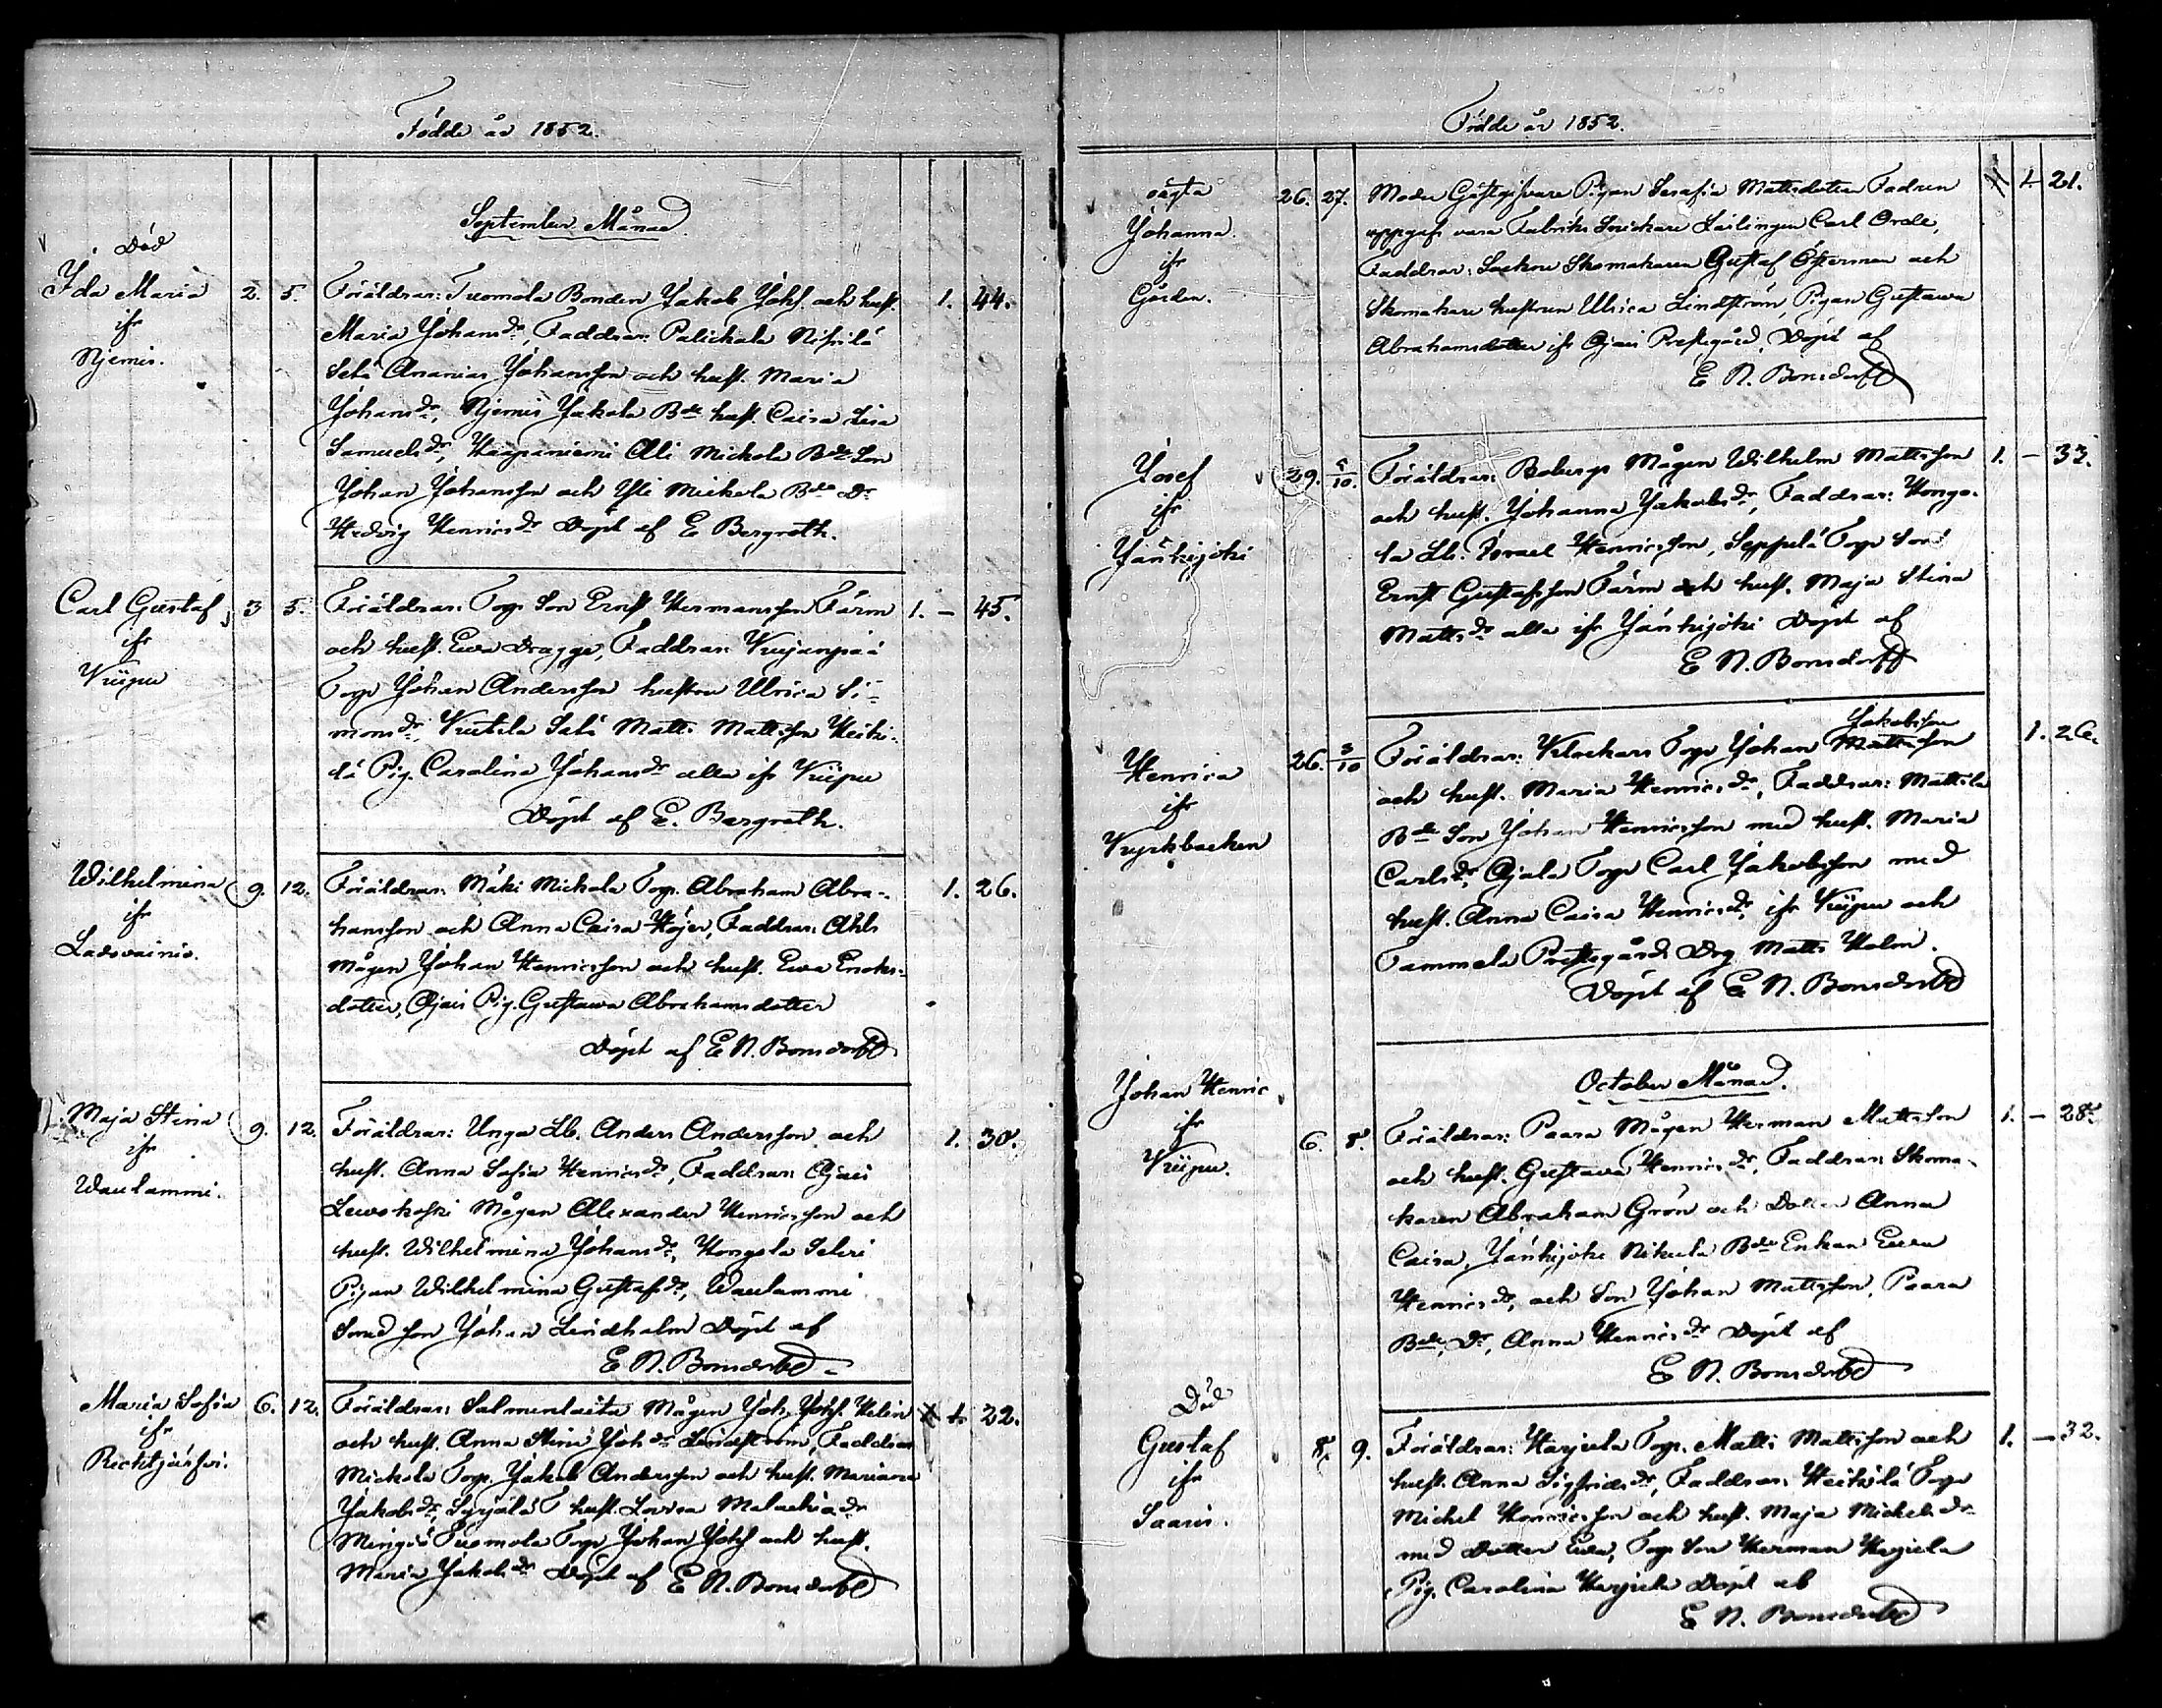 Födde år 1852.
September Månad
Död
Ida Maria 2. 5. Föräldrar: Tuomola Bonden Jakob Johs. och hust. 1. 44.
ifr
Njemis.
Maria Johansdr, Faddrar: Palickala
Sela Ananias Johansson och hust. Maria
Johansdr, Njemis Jakola Bde hust. Caisa Lisa
Samuelsdr, Haapaniemi Ali Mickola Bde Son
Johan Johansson och Yli Mickola Bde Dr
Hedvig Henricsdr Döpt af E Bergroth.
Carl Gustaf 3 5. Föräldrar: Torp. Son Ernst Hermansson Färm 1. – 45.
ifr
Kuipu
och hust. Ewa Dragge, Faddrar:
Torp Johan Andersson hustru Ulrica Si-
monsdr, Matts Mattsson Heiki-
lä Pig. Carolina Johansdr alla ifr
Döpt af E. Bergroth.
Wilhelmina 9. 12. Föräldrar: Mäki Mickola Torp. Abraham Abra- 1. 26.
ifr
hamsson och Anna Caisa Höjer, Faddrar: Ahls
Mågen Johan Henricsson och hust. Ewa Enoks-
dotter, Ojais Pig. Gustawa Abrahamsdotter
Döpt af E N. Bonsdorff
Maja Stina 9. 12. Föräldrar: Unga Lb. Anders Andersson och 1. 30.
ifr
Waulammi.
hust. Anna Sofia Henricsdr, Faddrar: Ojais
Lewokoski Mågen Alexander Henricsson och
hust. Wilhelmina Johansdr, Hongola Seleri
Pigan Wilhelmina Gustafsdr, Waulammi
Smed son Johan Lindholm Döpt af
E N. Bonsdorff
Maria Sofia 6. 12. Föräldrar: Salmenlaita Mågen Joh. Johs. Helin 22.
ifr
och hust. Anna Stina Johdr Lindström, Faddrar
Mickola Torp. Jakob Andersson och hust. Mariana
Jakobsdr, Syrjälä T hust. Lovisa Malachiadr
Tuomola Torp Johan Johs och hust.
Maria Jakobsdr Döpt af E N. Bonsdorff
Födde år 1852.
oägta
Johanna
ifr
Gården.
26. 27. Moder Gästgifvare Pigan Serafia Mattsdotter Fadren 21.
uppgifs vara Fabriks Snickare Lärlingen Carl Orde,
Faddrar: Socken Skomakaren Gustaf Österman och
Skomakare hustrun Ulrica Lindström, Pigan Gustawa
Abrahamsdotter ifr Ojais Prestgård, Döpt af
E N. Bonsdorff
Josef
ifr
Jänhijoki
29. 5/10. Föräldrar: Bobergs Mågen Wilhelm Mattsson 1. – 33.
och hust. Johanna Jakobsdr, Faddrar: Hongo-
la Lb. Israel Henricsson, Seppälä Torp Son
Ernst Gustafsson Färm och hust. Maja Stina
Mattsdr alla ifr Jänhijoki Döpt af
E N. Bonsdorff
Henrica
ifr
Kyrkbacken
26. 3/10 Föräldrar: Klockars Torp Johan Mattsson Jakobsson 1. 26.
och hust. Maria Henricsdr, Faddrar: Mattila
Bde Son Johan Henricsson med hust. Maria
Carlsdr, Ojala Torp Carl Jakobsson med
hust. Anna Caisa Henricsdr, ifr och
Tammela Prestgårds Drg Matts Holm.
Döpt af E N. Bonsdorff
October Månad.
Johan Henric
ifr
6. 8. Föräldrar: Paara Mågen Herman Mattsson 1. – 28.
och hust. Gustawa Henricsdr, Faddrar: Skoma-
karen Abraham Grön och Dotter Anna
Caisa, Jänhijoki Nikula Bde Enkan Ewa
Henricsdr, och Son Johan Mattsson, Paara
Bde, Dr, Anna Henricsdr Döpt af
E N. Bonsdorff
Död
Gustaf
ifr
Saaris.
8. 9. Föräldrar: Harjula Torp. Matts Mattsson och 1. – 32.
hust. Anna Sigfridsdr, Faddrar: Heikilä Torp
Michel Henricsson och hust. Maja Michelsdr
med Dotter Ewa, Torp Son Herman Harjula
Pig. Carolina Harjula Döpt af
E N. Bonsdorff